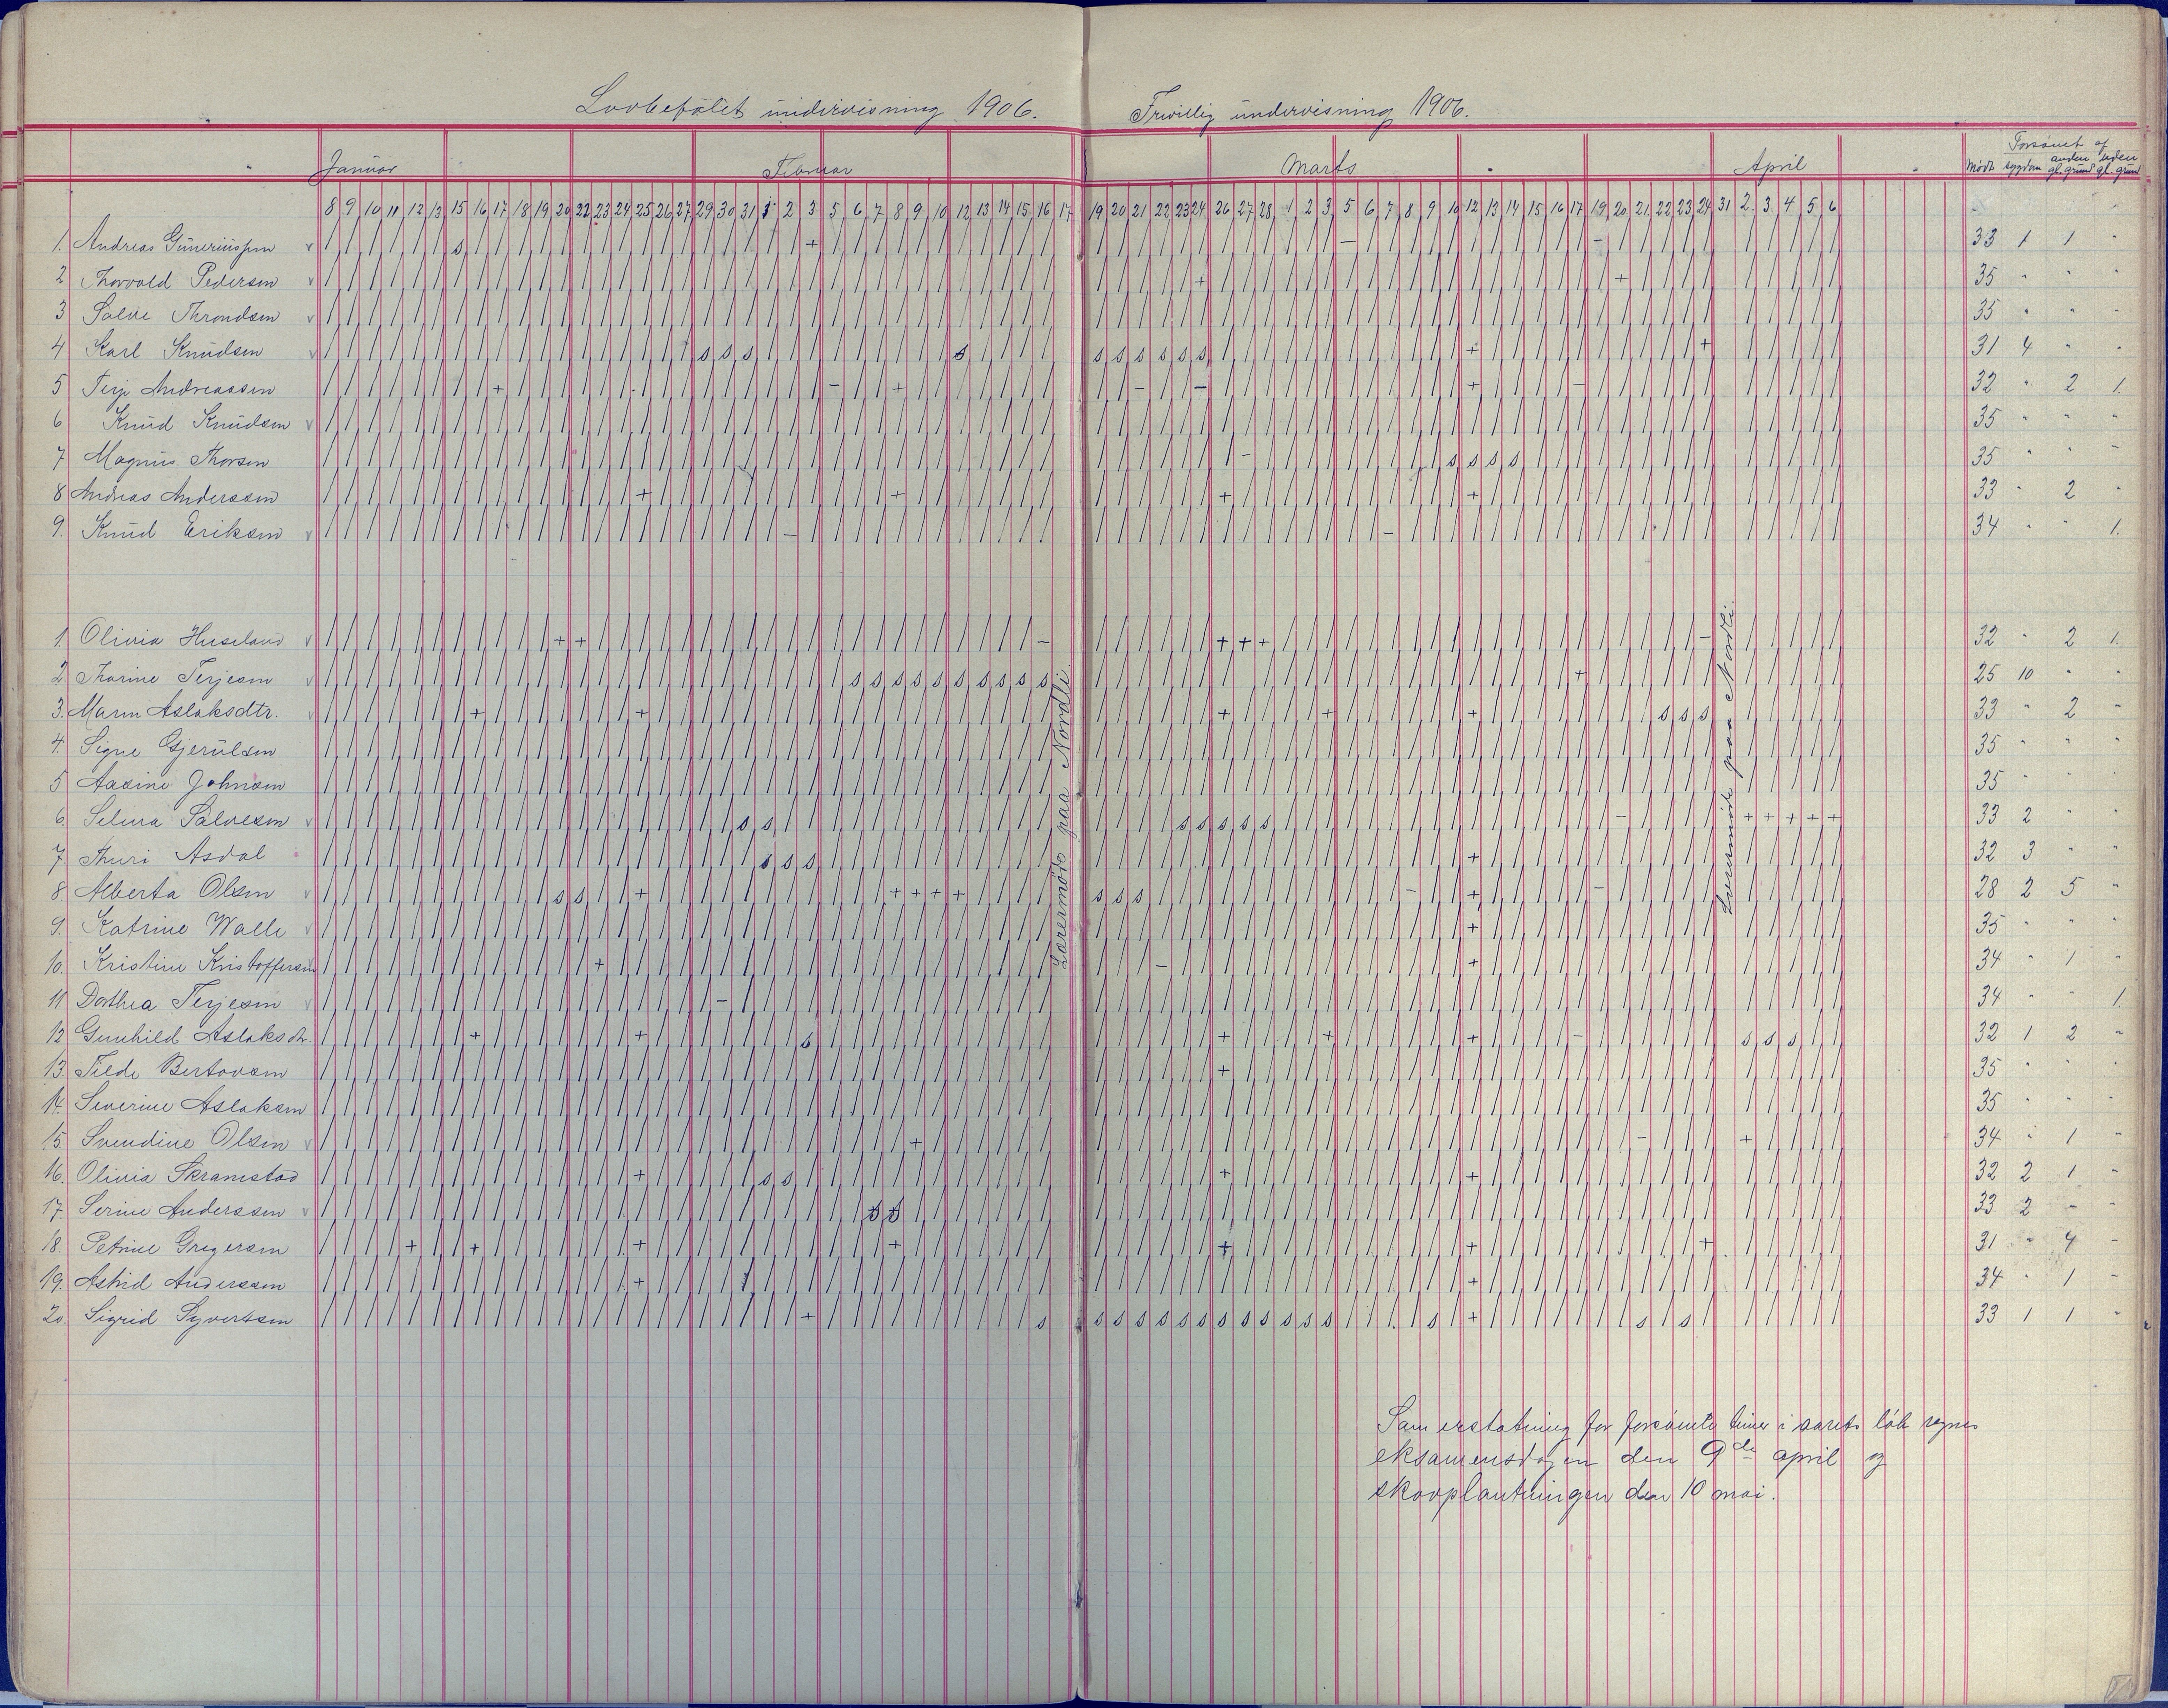 Lovbefalet undervisning 1906. Frivillig undervisning 1906.
Januar Februar Marts April Mødt Forsømt af sygdom anden gl. grund uden gl. grund
8 9 10 11 12 13 15 16 17 18 19 20 22 23 24 25 26 27 29 30 31 1 2 3 5 6 7 8 9 10 12 13 14 15 16 17 19 20 21 22 23 24 26 27 28 1 2 3 5 6 7 8 9 10 12 13 14 15 16 17 19 20 21 22 23 24 31 2 3 4 5 6
1. Andreas Gunerius­sen v s + - - 33 1 1 "
2 Thorvald Pedersen v + + 35 " " "
3 Salve Throndsen v 35 " " "
4 Karl Knudsen v s s s s s s s s s s + + 31 4 " "
5 Terje Andreassen + - + - - + - 32 " 2 1.
6 Knud Knudsen v 35 " " "
7 Magnus Thorsen - s s s s 35 " " "
8 Andreas Anderssen + + + + 33 " 2 "
9. Knud Eriksen v - - 34 " " 1.
1. Olivia Huseland v + + - + + + - 32 " 2 1.
2. Thorine Terjesen v s s s s s s s s s s + 25 10 " "
3. Maren Aslaksdtr. v + + + + + s s s 33 " 2 "
4. Signe Gjerulsen 35 " " "
5 Aasine Johnsen 35 " " "
6. Selma Salvesen v s s s s s s s - + + + + + 33 2 " "
7. Thuri Asdal s s s + 32 3 " "
8. Alberta Olsen v s s + + + + + s s s - + - 28 2 5 "
9. Katrine Walle v + 35 " " "
10. Kristine Kristoffersen + - + 34 " 1 "
11 Dorthea Terjesen v - 34 " " 1
12 Gunhild Aslaksdtr. + + s + + + - s s s 32 1 2 "
13. Tilde Bertovsen + 35 " " "
14. Severine Aslaksen 35 " " "
15. Svendine Olsen v + - + 34 " 1 "
16. Olivia Skramstad + s s + + 32 2 1 "
17. Serine Anderssen v s s 33 2 " "
18. Petrine Gregersen + + + + + + + 31 " 4 "
19. Astrid Anderssen + + 34 " 1 "
20. Sigrid Syvertsen + s s s s s s s s s s s s s s + s s 33 1 1 "
Lærermøde paa Nordli.
Lærermøde paa Nordli.
Som erstatning for forsømte timer i aarets løb regnes
eksamensdagen den 9de april og
skovplantningen den 10 mai.